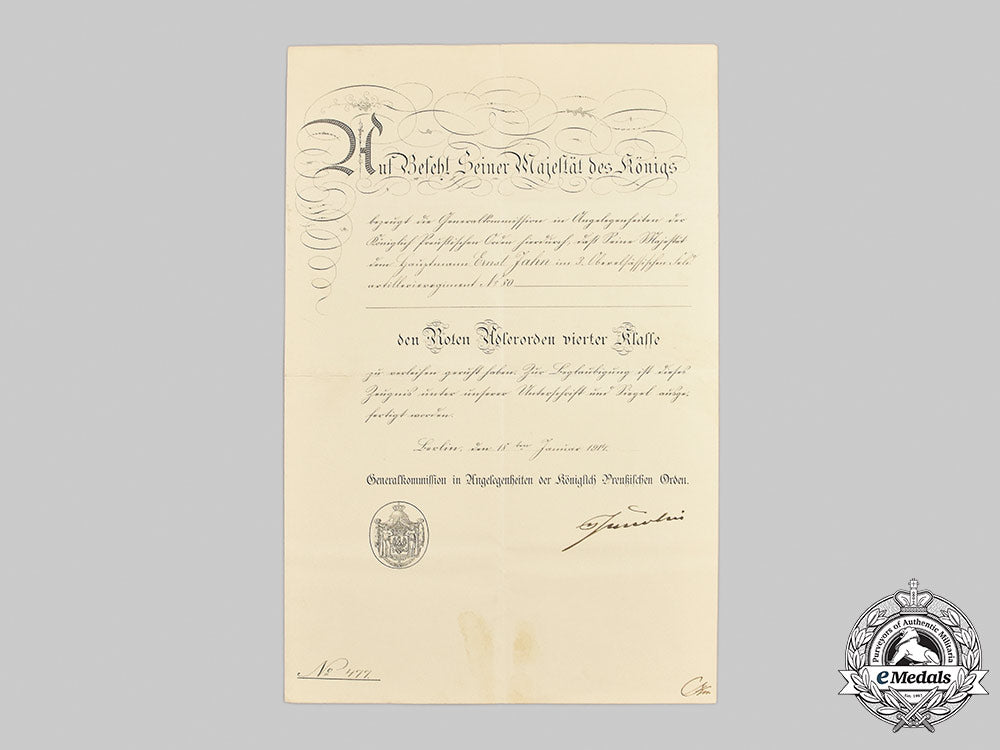 Auf Befehl Seiner Majestät des Königs
bezeugt die Generalkommission in Angelegenheiten der
Königlich Preußischen Orden hierdurch, daß Seine Majestät
dem Hauptmann Ernst Jahn im 3. Oberelsässischen Feld
artillerieregiment No 80
den Roten Adlerorden vierter Klasse
zu verleihen geruht haben. Zur Beglaubigung ist dieses
Zeugnis unter unserer Unterschrift und Siegel ausge-
fertigt worden.
Berlin, den 18ten Januar 1914.
Generalkommission in Angelegenheiten der Königlich Preußischen Orden.
No 477
Purveyors of Authentic Militaria
eMedals
Est. 1967